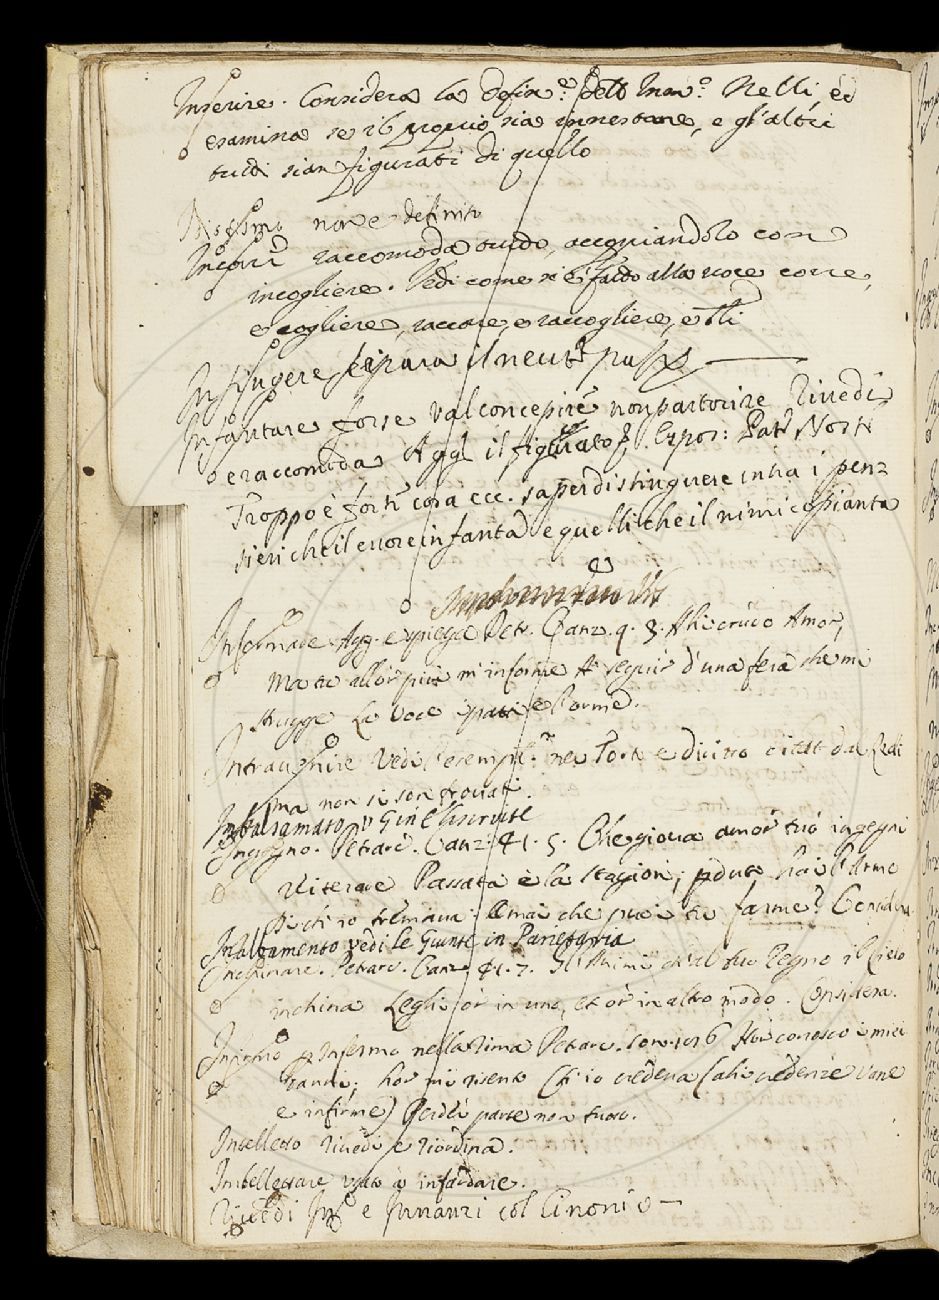 Inserire. Considera la defin.e dell' Nelli, ed
esamina se il proprio sia innestare, e gl'altri
tutti sian figurati di quello
non è definito
raccomoda tutto, accoppiandolo con
incogliere. Vedi come si è fatto alla voce corre,
e cogliere, raccorre, e raccogliere, e tli
Infingere separa il neut.
Infantare forse val concepire non partorire Rivedi
e raccomoda Agg il figurato Espos: Pat Nost
Troppo è forti cosa ecc. saper distinguere intra i pen=
sieri che il cuore infanta e quelli che il nimico pianta
Informare Agg. e spiega Petr. Canz. 9. 3. Ahi crudo Amor,
Ma tu allor più m'informe A seguir d'una fera che mi
strugge La voce i passi e l'orme.
Intravenire Vedi l'esemp. nel citat dal Redi
ma non si son trovati.
Imbalsamato v Giunte
Ingegno. Petrarc. Canz. 41. 5. Che giova amor tuo ingegni
ritentare Passata è la stagion; perduto hai l'Arme
Di ch'io tremava: Omai che puoi tu farme? Considera.
Inalzamento vedi le Giunte in Parietaria
Inchinare. Petrarc. Canz. 41. 7. ch'al suo Regno il Cielo
inchina Leghi or in uno, et or in altro modo. Considera.
Infirmo p Infermo nella rima Petrarc. Son. Hor conosco i miei
danni; hor mi risento Ch'io credeva (ahi credenze vane
e infirme) Perder parte non tutto.
Intelletto rivedi e riordina.
Imbellettare
Rivedi In e Innanzi col Cinonio —